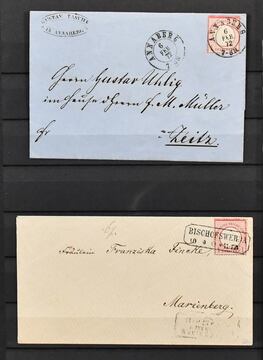 GUSTAV
IN ANNABERG.
ANNABERG
6
FEB
72
ANNABERG
6
FEB
72
Herrn Gustav Uhlig
im Hause d Herrn F. M. Müller
fr
Zeitz
BISCHOFSWERDA
Fräulein Franziska Fincke,
Marienberg.